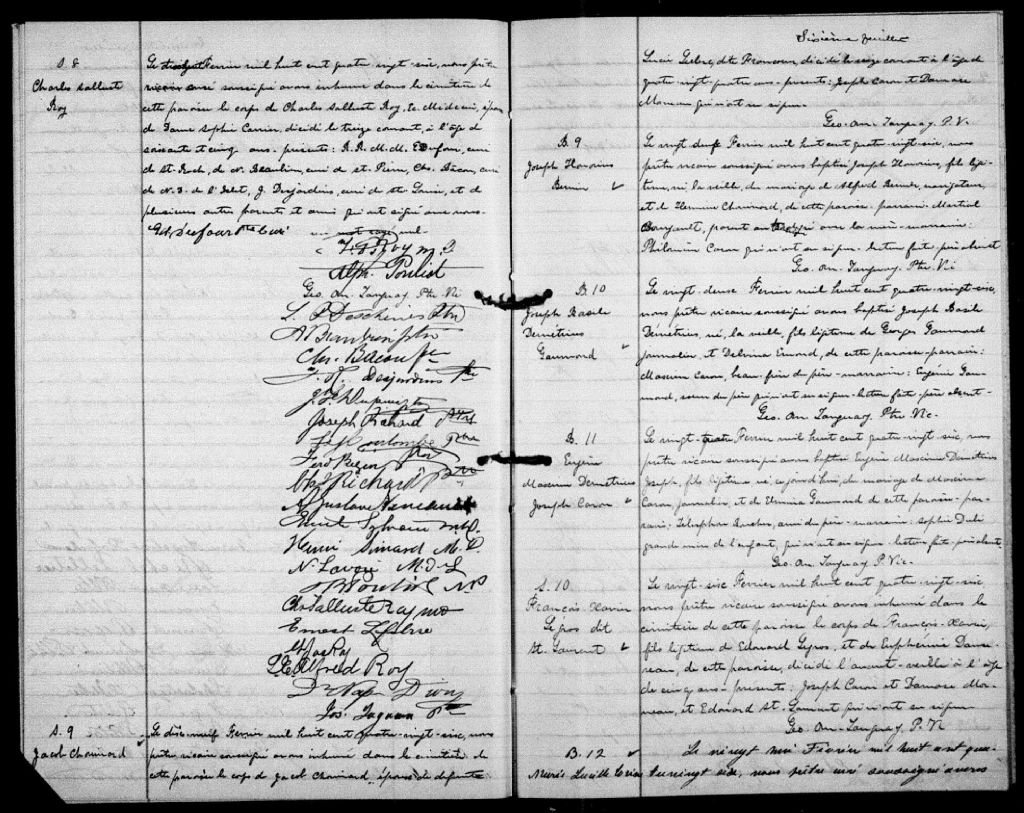 S. 8
Charles Salluste
Roy
Le Fevrier mil huit cent quatre-vingt-six, nous prêtre
curé soussigné avons inhumé dans le cimetière de
cette paroisse le corps de Charles Salluste Roy, Ec. Médecin, époux
de Dame Sophie Carrier, décédé le treize courant, à l'âge de
soixante et cinq ans. présents: R.R. M.M. E. Dufour, curé
de St. Roch, de N. Beaulieu, curé de St. Pierre, Chs. Bacon, curé
de N. D. de l'Islet, J. Desjardins, curé de St. Louis, et de
plusieurs autres parents et amis qui ont signé avec nous.
Ed. Dufour Ptre Curé
Roy M.D.
Alph. Pouliot
Geo. An. Tanguay Ptr. Vic
Deschenes Ptre
Chs. Bacon Ptre
Desjardins Ptre
Joseph Richard Ptre
Richard Ptre
Gustave
Sylvain
Henri Simard M.D.
N. Lavoie M.D.L
N.P.
Ch Salluste Raymo
Ernest
Roy
Alfred Roy
Dr Nap. Dion
Jos.
S. 9
Jacob Chouinard
Le dix-neuf Fevrier mil huit cent quatre-vingt-six, nous
prêtre vicaire soussigné avons inhumé dans le cimetière de
cette paroisse le corps de Jacob Chouinard, époux de défunte
Sixième feuillet
dit Francoeur, décédé le seize courant à l'âge de
quatre-vingt-quatre ans. présents: Joseph Caron et Damase
Moreau qui n'ont su signer.
Geo. An. Tanguay P. V.
B. 9
Joseph Honorius
Bernier
Le vingt Fevrier mil huit cent quatre-vingt-six, nous
prêtre vicaire soussigné avons baptisé Joseph Honorius, fils légi-
time, né la veille, du mariage de Alfred Bernier, navigateur,
et de Hermine Chouinard, de cette paroisse. parrain: Martial
parent avec la mère - marraine:
Philomène Caron qui n'ont su signer. lecture faite. père absent
Geo. An. Tanguay Ptr. Vic
B. 10
Joseph Basile
Demetrius
Gaumond
Le vingt-deux Fevrier mil huit cent quatre-vingt-six,
nous prêtre vicaire soussigné avons baptisé Joseph Basile
Demetrius, né, la veille, fils légitime de Georges Gaumond
journalier, et Delvina Emond, de cette paroisse - parrain:
Maxime Caron, beau-frère du père - marraine: Eugénie Gau-
mond, soeur du père qui n'ont su signer. lecture faite. père absent.
Geo. An. Tanguay Ptr. Vic.
B. 11
Eugène
Maxime Demetrius
Joseph Caron
Le vingt-quatre Fevrier mil huit cent quatre-vingt-six, nous
prêtre vicaire soussigné avons baptisé Eugène Maxime Demetrius
Joseph, fils légitime né, aujourd'hui, du mariage de Maxime
Caron, journalier, et de Gaumond de cette paroisse - par-
rain: ami du père - marraine: Sophie Dubé
grand mère de l'enfant, qui n'ont su signer. lecture faite. père absent.
Geo. An. Tanguay P. Vic.
S. 10
François-Xavier
Legros dit
St. Laurent
Le vingt-six Fevrier mil huit cent quatre-vingt-six,
nous prêtre vicaire soussigné avons inhumé dans le
cimetière de cette paroisse le corps de François-Xavier,
fils légitime de Edouard Legros, et de Euphémie
de cette paroisse, décédé l'avant-veille à l'âge
de cinq ans - présents: Joseph Caron et Damase Mo-
reau, et Edouard St. Laurent qui n'ont su signer
Geo. An. Tanguay P. V.
B. 12
Marie Lucille
Le vingt Fevrier mil huit cent qua-
tre vingt six, nous prêtre curé soussigné avons